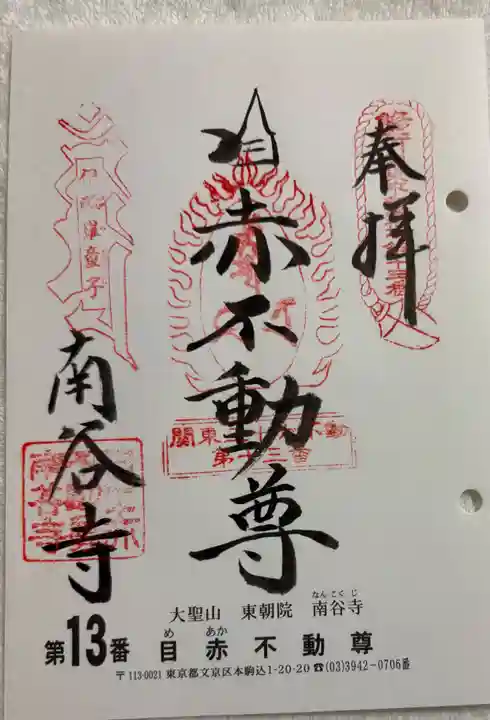 奉拝
目赤不動尊
南谷寺
関東三十六不動
第十三番
大聖山 東朝院 南谷寺
なんこくじ
第13番 目赤不動尊
め あか
〒113-0021 東京都文京区本駒込1-20-20 ☎(03)3942-0706番